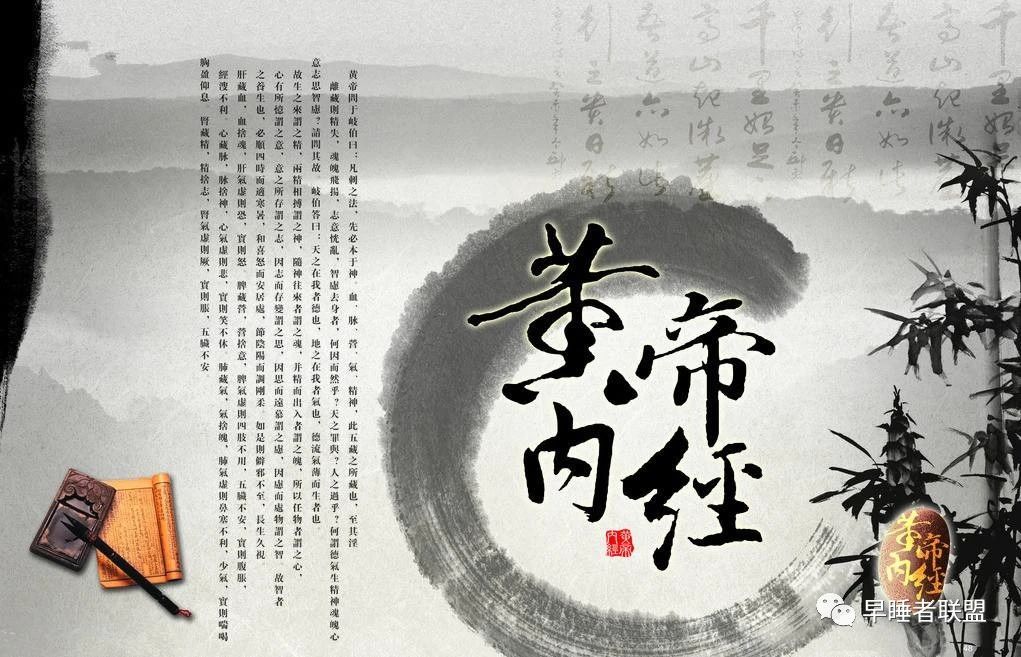 千里始足
高山起微
吾道亦如
行之貴日新
黄帝問于岐伯曰：凡刺之法，先必本于神。血、脉、營、氣、精神，此五藏之所藏也，至其淫
離藏則精失，魂魄飛揚，志意恍亂，智慮去身者，何因而然乎？天之罪與？人之過乎？何謂德氣生精神魂魄心
意志思智慮？請問其故。岐伯答曰：天之在我者德也，地之在我者氣也，德流氣薄而生者也
故生之來謂之精，兩精相搏謂之神，隨神往來者謂之魂，并精而出入者謂之魄，所以任物者謂之心，
心有所憶謂之意，意之所存謂之志，因志而存變謂之思，因思而遠慕謂之慮，因慮而處物謂之智 故智者
之養生也，必順四時而適寒暑，和喜怒而安居處，節陰陽而調剛柔。如是則僻邪不至，長生久視。
肝藏血，血捨魂，肝氣虛則恐，實則怒。脾藏營，營捨意，脾氣虛則四肢不用，五臟不安，實則腹脹，
經溲不利。心藏脉，脉捨神，心氣虛則悲，實則笑不休 肺藏氣，氣捨魄，肺氣虛則鼻塞不利，少氣，實則喘喝
胸盈仰息。腎藏精，精捨志，腎氣虛則厥，實則脹，五臟不安。
黄帝
内經
黄帝内經
黄帝内經
早睡者联盟
48